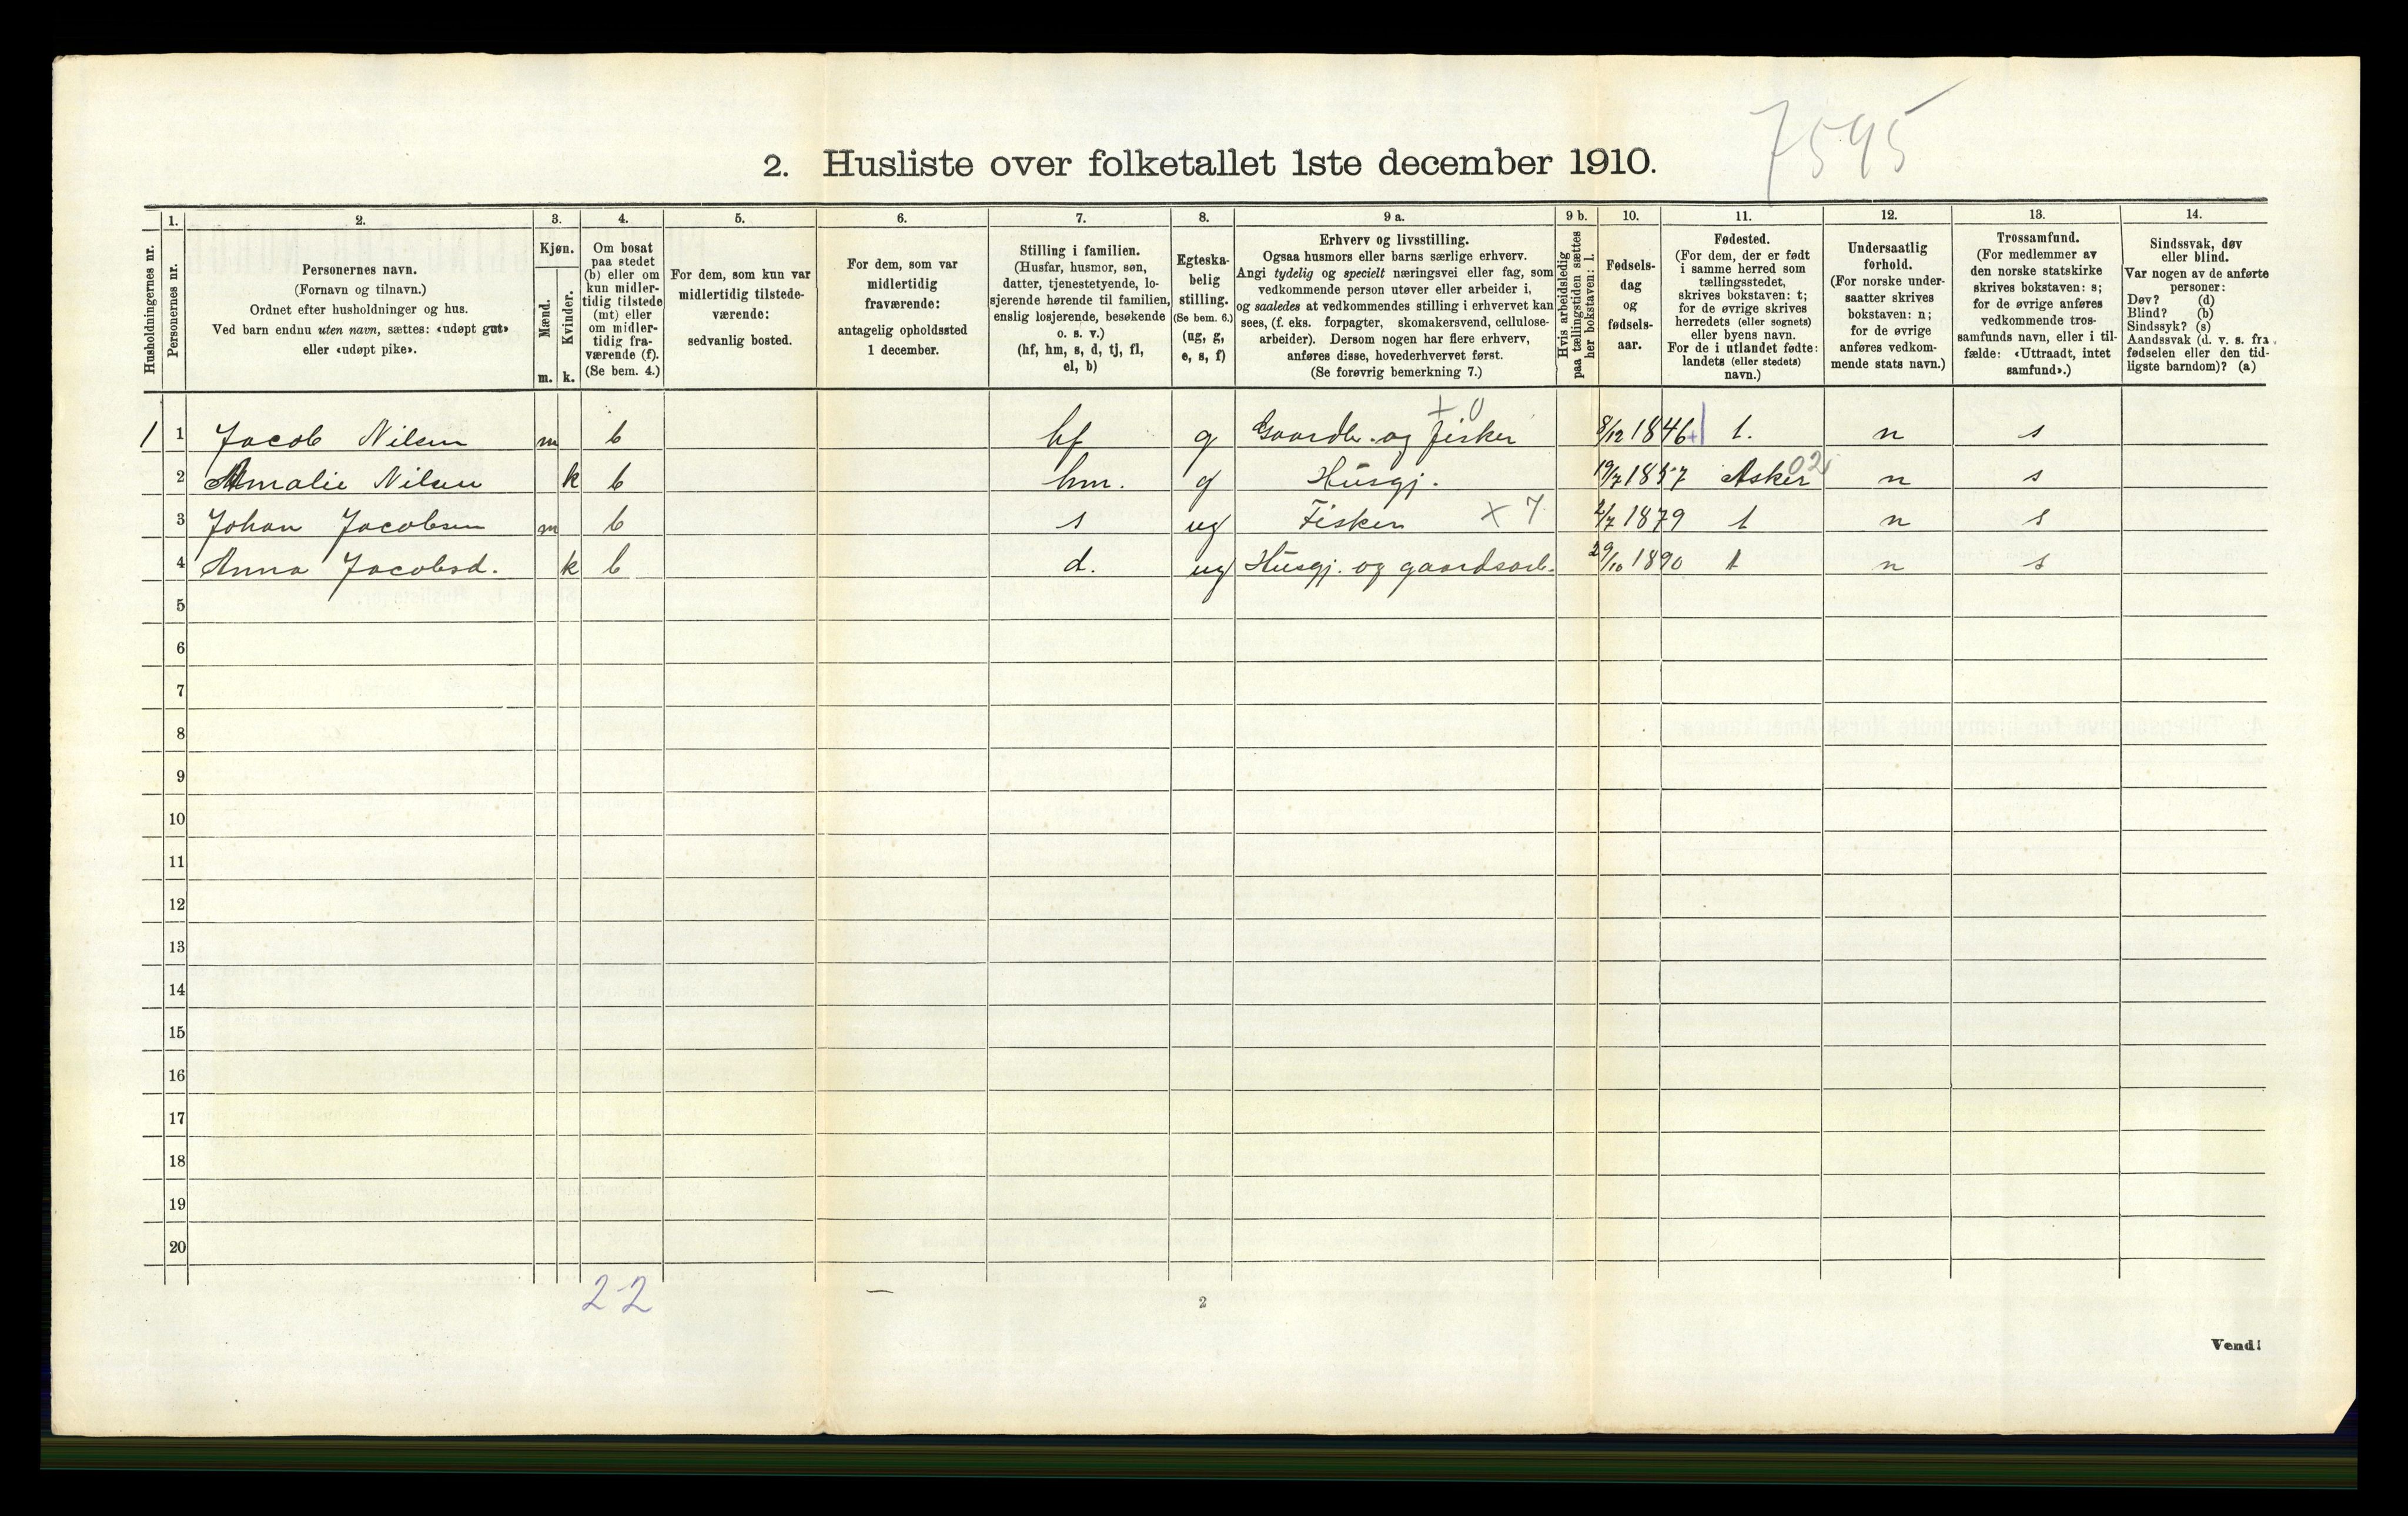 7595
2. Husliste over folketallet 1ste december 1910.
Husholdningernes nr.
1.
Personernes nr.
2.
Personernes navn.
(Fornavn og tilnavn.)
Ordnet efter husholdninger og hus.
Ved barn endnu uten navn, sættes: «udøpt gut»
eller «udøpt pike».
3.
Kjøn.
Mænd.
m.
Kvinder.
k.
4.
Om bosat
paa stedet
(b) eller om
kun midler-
tidig tilstede
(mt) eller
om midler-
tidig fra-
værende (f).
(Se bem. 4.)
5.
For dem, som kun var
midlertidig tilstede-
værende:
sedvanlig bosted.
6.
For dem, som var
midlertidig
fraværende:
antagelig opholdssted
1 december.
7.
Stilling i familien.
(Husfar, husmor, søn,
datter, tjenestetyende, lo-
sjerende hørende til familien,
enslig losjerende, besøkende
o. s. v.)
(hf, hm, s, d, tj, fl,
el, b)
8.
Egteska-
belig
stilling.
(Se bem. 6.)
(ug, g,
e, s, f)
9 a.
Erhverv og livsstilling.
Ogsaa husmors eller barns særlige erhverv.
Angi tydelig og specielt næringsvei eller fag, som
vedkommende person utøver eller arbeider i,
og saaledes at vedkommendes stilling i erhvervet kan
sees, (f. eks. forpagter, skomakersvend, cellulose-
arbeider). Dersom nogen har flere erhverv,
anføres disse, hovederhvervet først.
(Se forøvrig bemerkning 7.)
9 b.
Hvis arbeidsledig
paa tællingstiden sættes
her bokstaven: l.
10.
Fødsels-
dag
og
fødsels-
aar.
11.
Fødested.
(For dem, der er født
i samme herred som
tællingsstedet,
skrives bokstaven: t;
for de øvrige skrives
herredets (eller sognets)
eller byens navn.
For de i utlandet fødte:
landets (eller stedets)
navn.)
12.
Undersaatlig
forhold.
(For norske under-
saatter skrives
bokstaven: n;
for de øvrige
anføres vedkom-
mende stats navn.)
13.
Trossamfund.
(For medlemmer av
den norske statskirke
skrives bokstaven: s;
for de øvrige anføres
vedkommende tros-
samfunds navn, eller i til-
fælde: «Uttraadt, intet
samfund».)
14.
Sindssvak, døv
eller blind.
Var nogen av de anførte
personer:
Døv? (d)
Blind? (b)
Sindssyk? (s)
Aandssvak (d. v. s. fra
fødselen eller den tid-
ligste barndom)? (a)
+ 0
1 1 Jacob Nilsen m b hf g Gaardbr. og fisker 8/12 1846 + t. n s
2 Amalie Nilsen k b hm. g Husgj. 19/7 1857 Asker 02 n s
3 Johan Jacobsen m b s ug Fisker x 7 2/7 1879 t n s
4 Anna Jacobsd. k b d. ug Husgj. og gaardsarb. 29/10 1890 t n s
5
6
7
8
9
10
11
12
13
14
15
16
17
18
19
20
2 2 —
2
Vend!